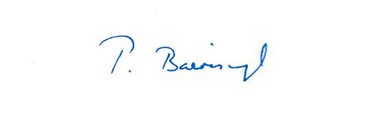 P. Baeriswyl